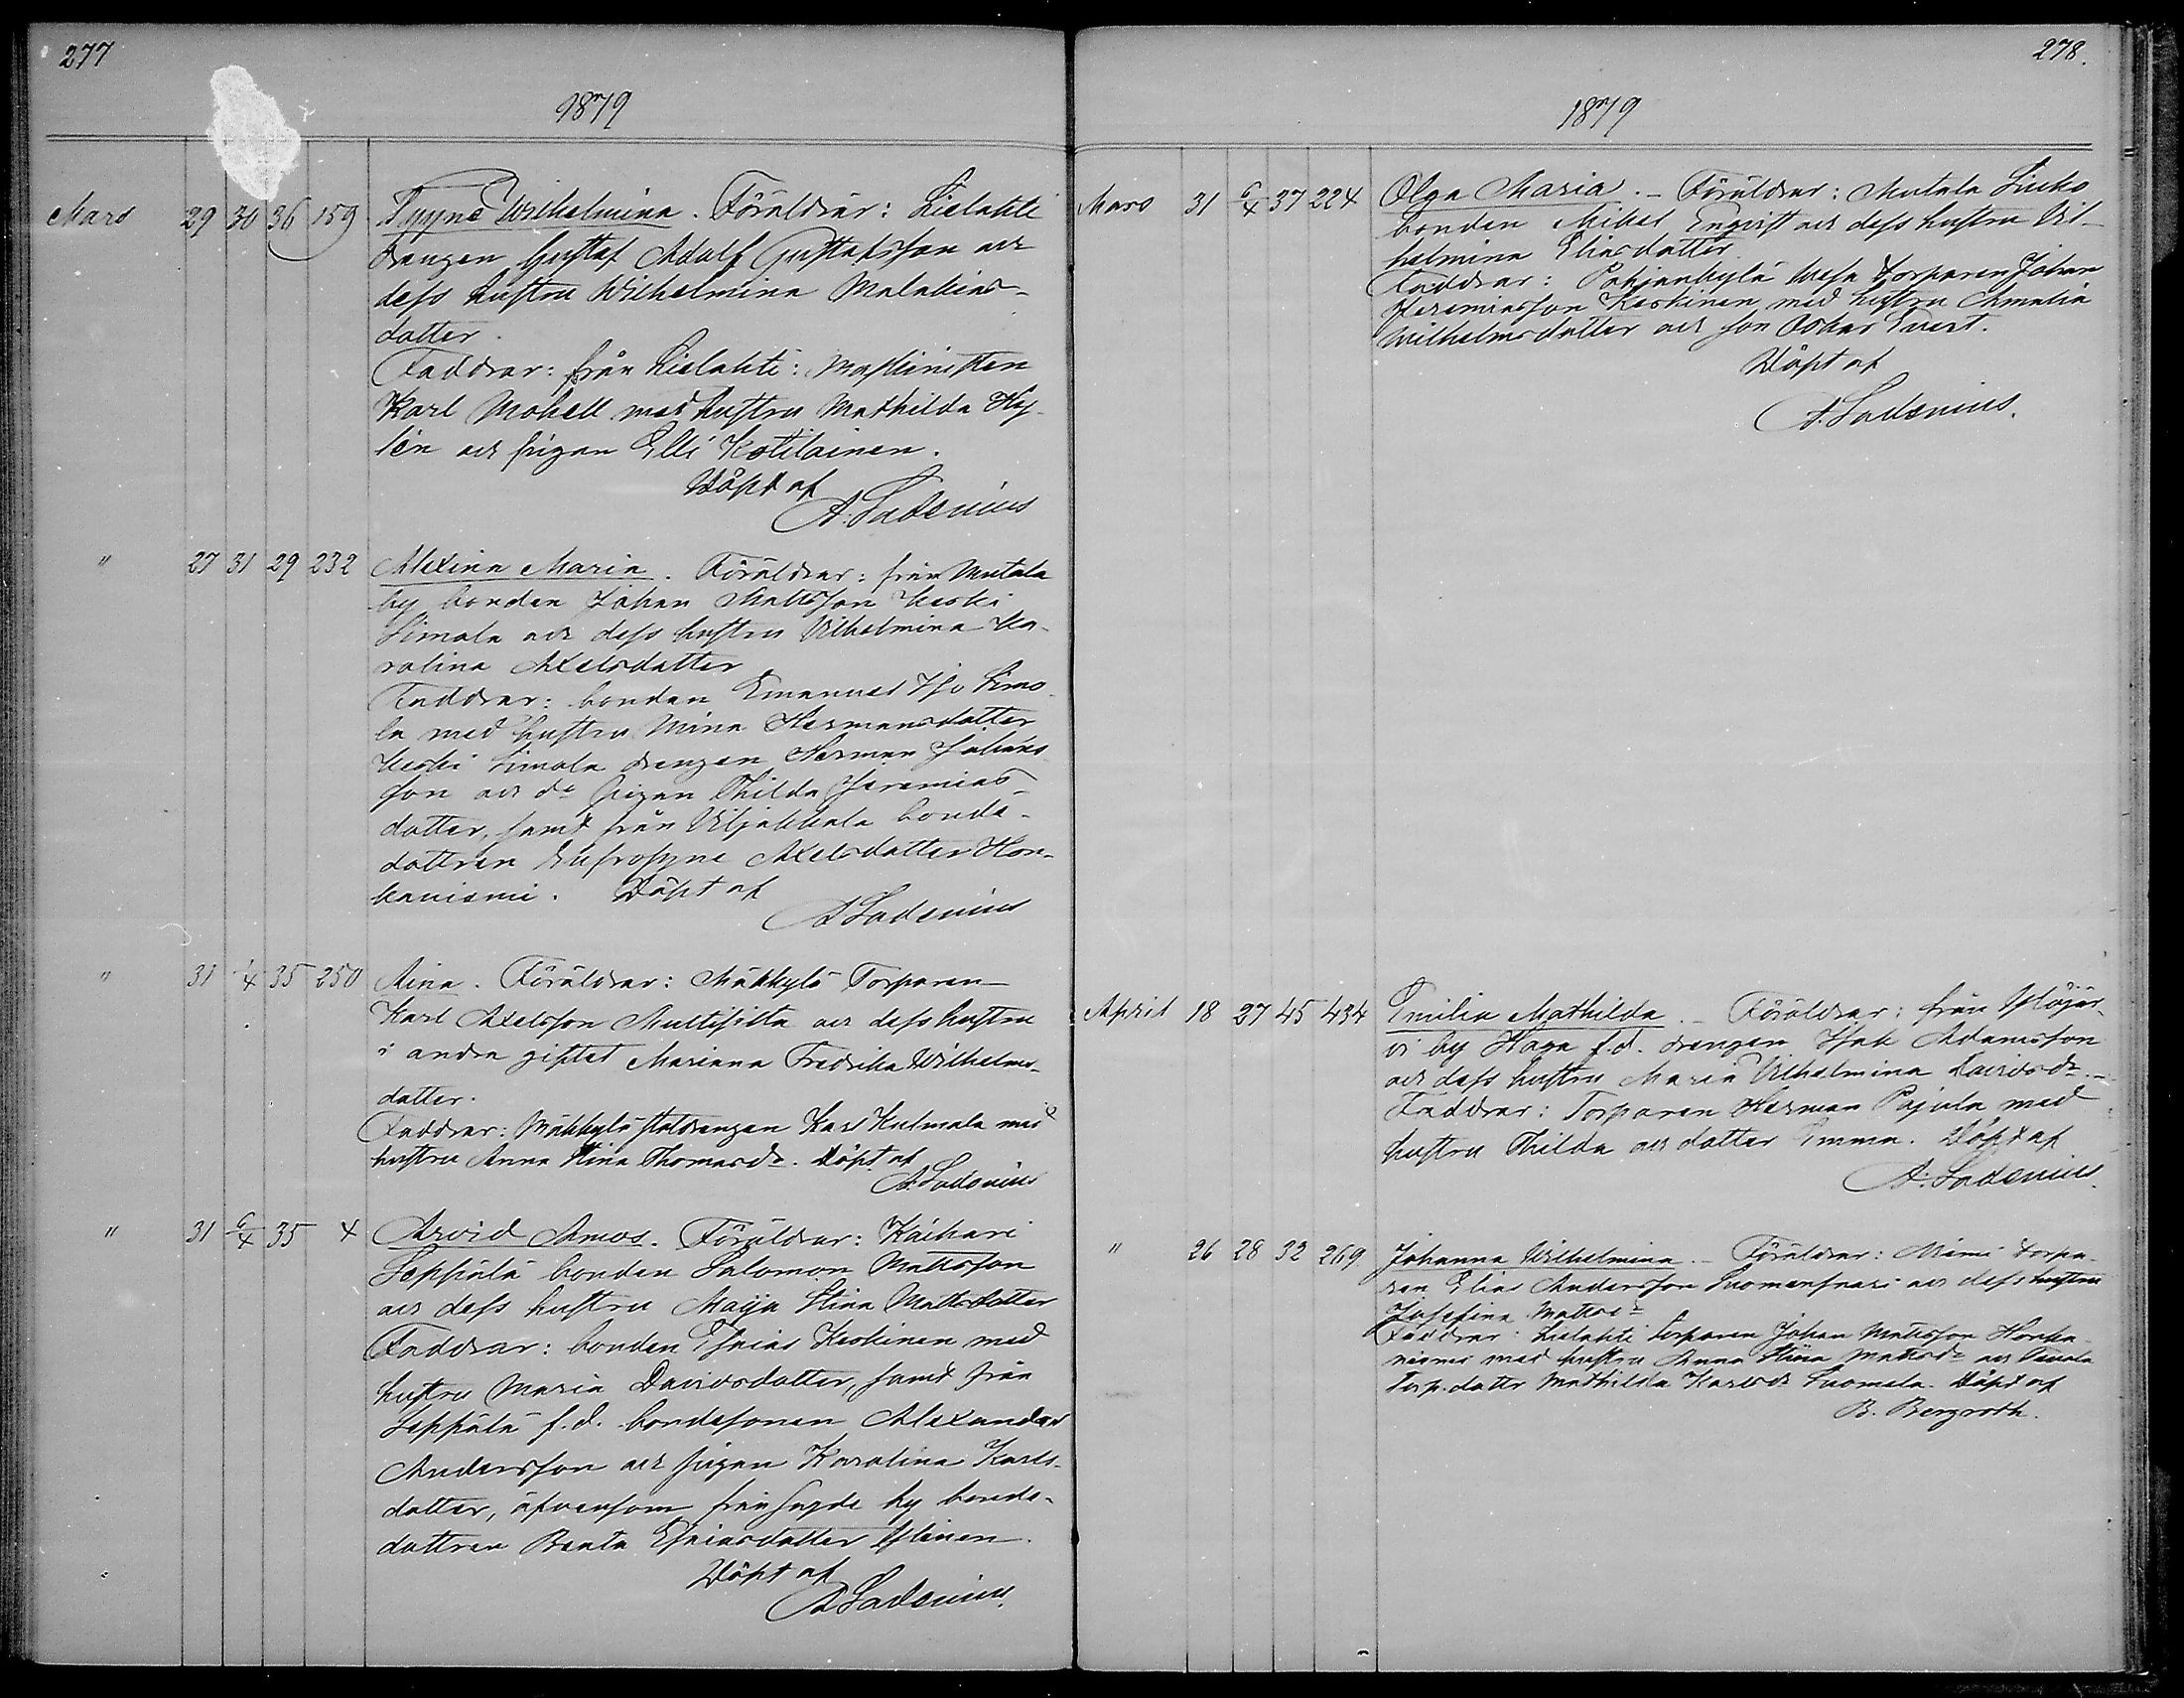 277
1879
Mars 29 30 36 159 Tyyne Wilhelmina. Föräldrar: Lielahti
drengen Gustaf Adolf Gustafsson och
dess hustru Wilhelmina Malakias-
dotter.
Faddrar: från Lielahti: Maskinisten
Karl Mohell med hustru Mathilda Hy-
lén och pigan Elli Kotilainen.
Döpt af
A. Ladenius
" 27 31 29 232 Alexina Maria. Föräldrar: från Mutala
by bonden Johan Mattsson Keski
Simola och dess hustru Vilhelmina Ka-
rolina Axelsdotter
Faddrar: bonden Emanuel Iso Simo-
la med hustru Mina Hermansdotter
Keski Simola drengen Herman Johans-
son och do pigan Thilda Jeremias-
dotter, samt från Viljakkala bonde-
dottren Eufrosyne Axelsdotter Hon-
kaniemi. Döpt af
A Ladenius
" 31 1/4 35 250 Aina. Föräldrar: Mäkkylä Torparen
Karl Axelsson Multisilta och dess hustru
i andra giftet Marianna Fredrika Wilhelms-
dotter.
Faddrar: Mäkkylä staldrengen Karl Kulmala med
hustru Anna Stina Thomasdr. Döpt af
A. Ladenius
" 31 6/4 35 4 Arvid Amos. Föräldrar: Kaihari
Seppälä bonden Salomon Mattsson
och dess hustru Maija Stina Mattsdotter
Faddrar: bonden Esaias Keskinen med
hustru Maria Davidsdotter, samt från
Seppälä f.d. bondesonen Alexander
Andersson och pigan Karolina Karls-
dotter, äfvensom från sagde by bonde-
dottren Benta Esaiasdotter
Döpt af
A Ladenius.
278.
1879
Mars 31 6/4 37 224 Olga Maria. – Föräldrar: Mutala Sinko
bonden Mikel Engvist och dess hustru Vil-
helmina Eliasdotter.
Faddrar: Pohjankylä torparen Johan
Jeremiasson Keskinen med hustru Amalia
Wilhelmsdotter och son Oskar Evert.
Döpt af
A. Ladenius.
April 18 27 45 434 Emilia Mathilda. – Föräldrar: från Ylöjär-
vi by Haga f.d. drengen Isak Adamsson
och dess hustru Maria Vilhelmina Davidsdr. –
Faddrar: Torparen Herman Pajula med
hustru Thilda och dotter Emma. Döpt af
A. Ladenius.
" 26 28 32 269. Johanna Wilhelmina. – Föräldrar: Niemi torpa-
ren Elias Andersson och dess hustru
Josefina Mattsdr
Faddrar: Lielahti torparen Johan Mattsson Honka-
niemi med hustru Anna Stina Mattsdr och
Torp.dotter Mathilda Karlsdr Suomela. Döpt af
B. Bergroth.